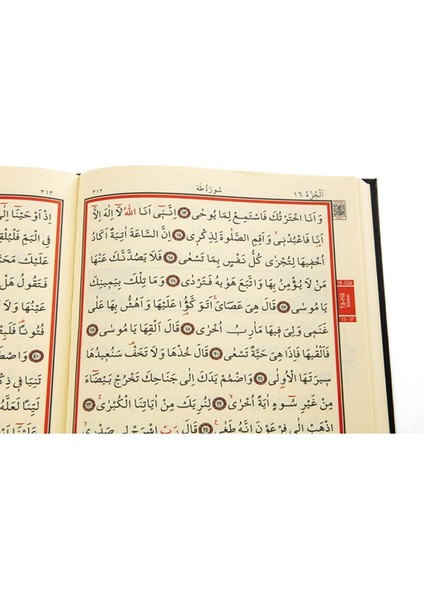 اَلْجُزْءُ ١٦ سُورَةُ طٰهٰ ٣١٢
وَاَنَا اخْتَرْتُكَ فَاسْتَمِعْ لِمَا يُوحٰى ﴿١٣﴾ اِنَّنٖٓي اَنَا اللّٰهُ لَٓا اِلٰهَ اِلَّٓا
اَنَا۬ فَاعْبُدْنٖيۙ وَاَقِمِ الصَّلٰوةَ لِذِكْرٖي ﴿١٤﴾ اِنَّ السَّاعَةَ اٰتِيَةٌ اَكَادُ
اُخْفٖيهَا لِتُجْزٰى كُلُّ نَفْسٍ بِمَا تَسْعٰى ﴿١٥﴾ فَلَا يَصُدَّنَّكَ عَنْهَا
مَنْ لَا يُؤْمِنُ بِهَا وَاتَّبَعَ هَوٰيهُ فَتَرْدٰى ﴿١٦﴾ وَمَا تِلْكَ بِيَمٖينِكَ
يَا مُوسٰى ﴿١٧﴾ قَالَ هِيَ عَصَايَۚ اَتَوَكَّؤُ۬ا عَلَيْهَا وَاَهُشُّ بِهَا عَلٰى
غَنَمٖي وَلِيَ فٖيهَا مَاٰرِبُ اُخْرٰى ﴿١٨﴾ قَالَ اَلْقِهَا يَا مُوسٰى ﴿١٩﴾
فَاَلْقٰيهَا فَاِذَا هِيَ حَيَّةٌ تَسْعٰى ﴿٢٠﴾ قَالَ خُذْهَا وَلَا تَخَفْ۠ سَنُعٖيدُهَا
سٖيرَتَهَا الْاُو۫لٰى ﴿٢١﴾ وَاضْمُمْ يَدَكَ اِلٰى جَنَاحِكَ تَخْرُجْ بَيْضَٓاءَ
مِنْ غَيْرِ سُٓوءٍ اٰيَةً اُخْرٰىۙ ﴿٢٢﴾ لِنُرِيَكَ مِنْ اٰيَاتِنَا الْكُبْرٰىۚ ﴿٢٣﴾
اِذْهَبْ اِلٰى فِرْعَوْنَ اِنَّهُ طَغٰى۟ ﴿٢٤﴾ قَالَ رَبِّ اشْرَحْ لٖي صَدْرٖيۙ
Tâ-Hâ
٣١٣
اِذْ اَوْحَيْنَٓا اِلٰٓى
فِي الْيَمِّ فَلْيُلْقِهِ
عَلَيْكَ
فَتَقُولُ هَلْ
عَيْنُهَا وَلَا
فُتُونًا۠
تَنِيَا فٖي
لَيِّنًا لَعَلَّهُ
عَلَيْنَٓا